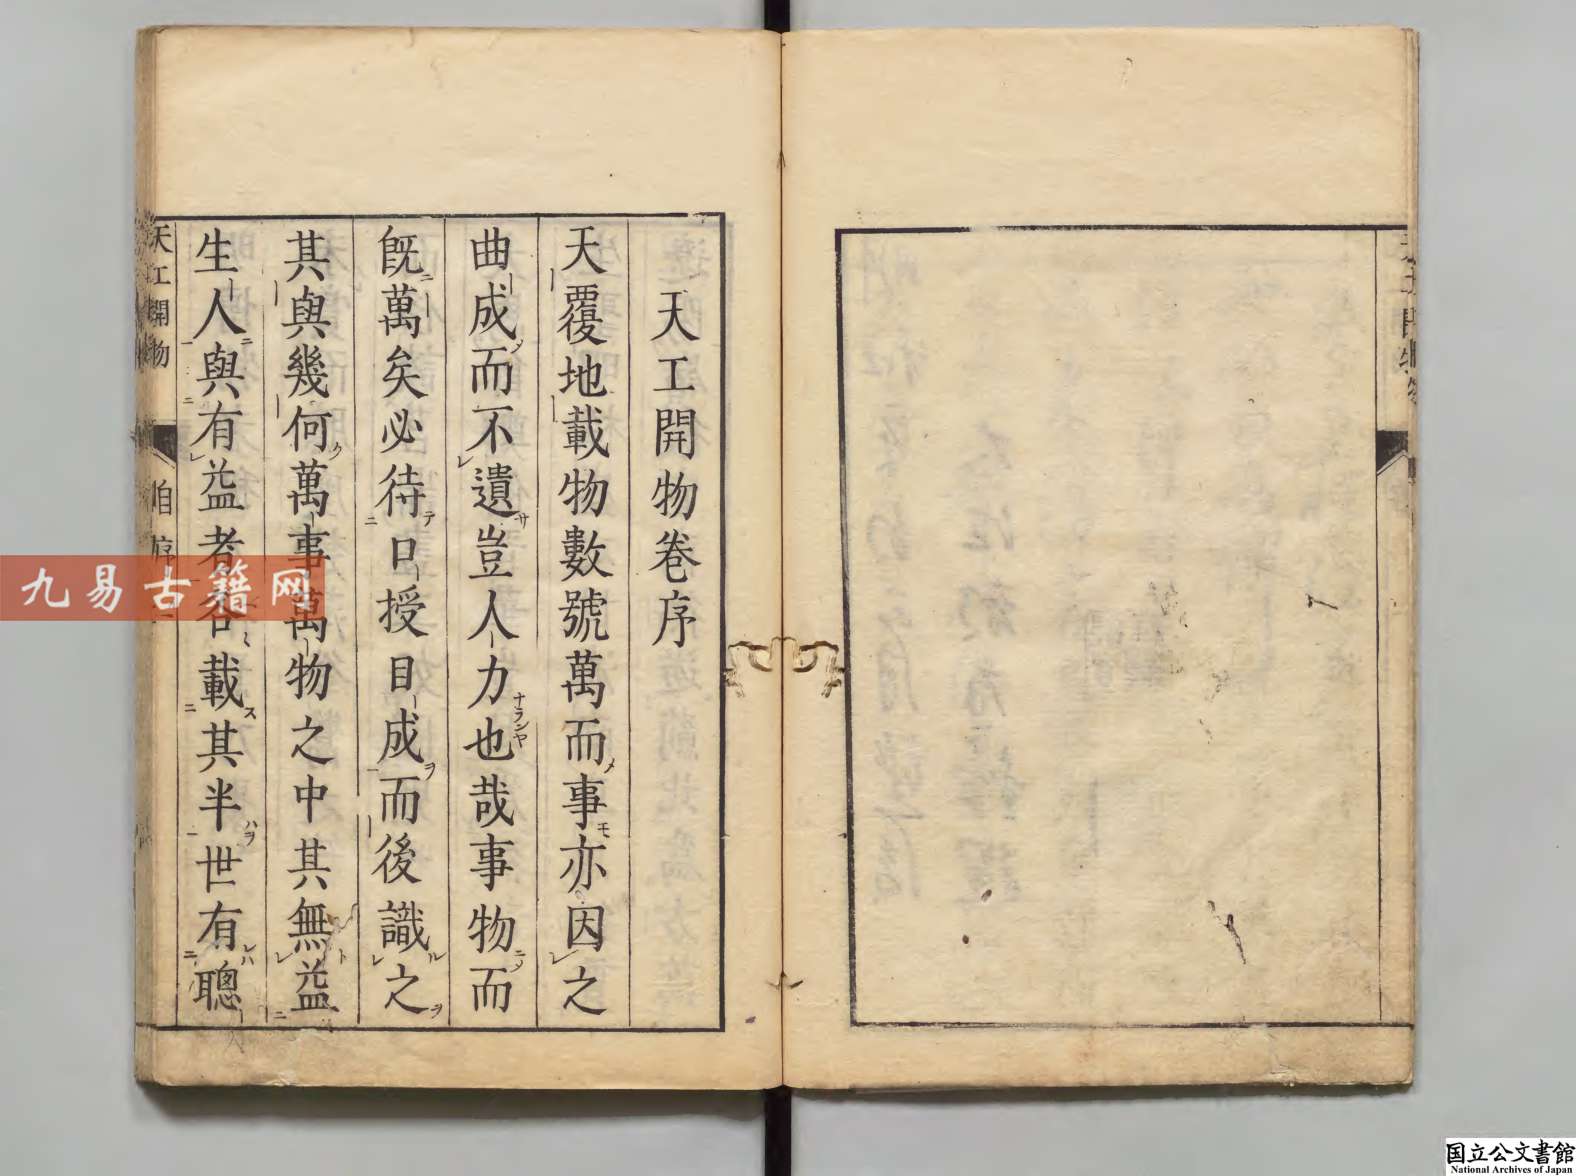 天工開物卷序
天覆地載物數號萬而事亦因之
曲成而不遺豈人力也哉事物而
旣萬矣必待口授目成而後識之
其與幾何萬事萬物之中其無益
生人與有益者各載其半世有聰
天工開物
序
九易古籍网
国立公文書館
National Archives of Japan